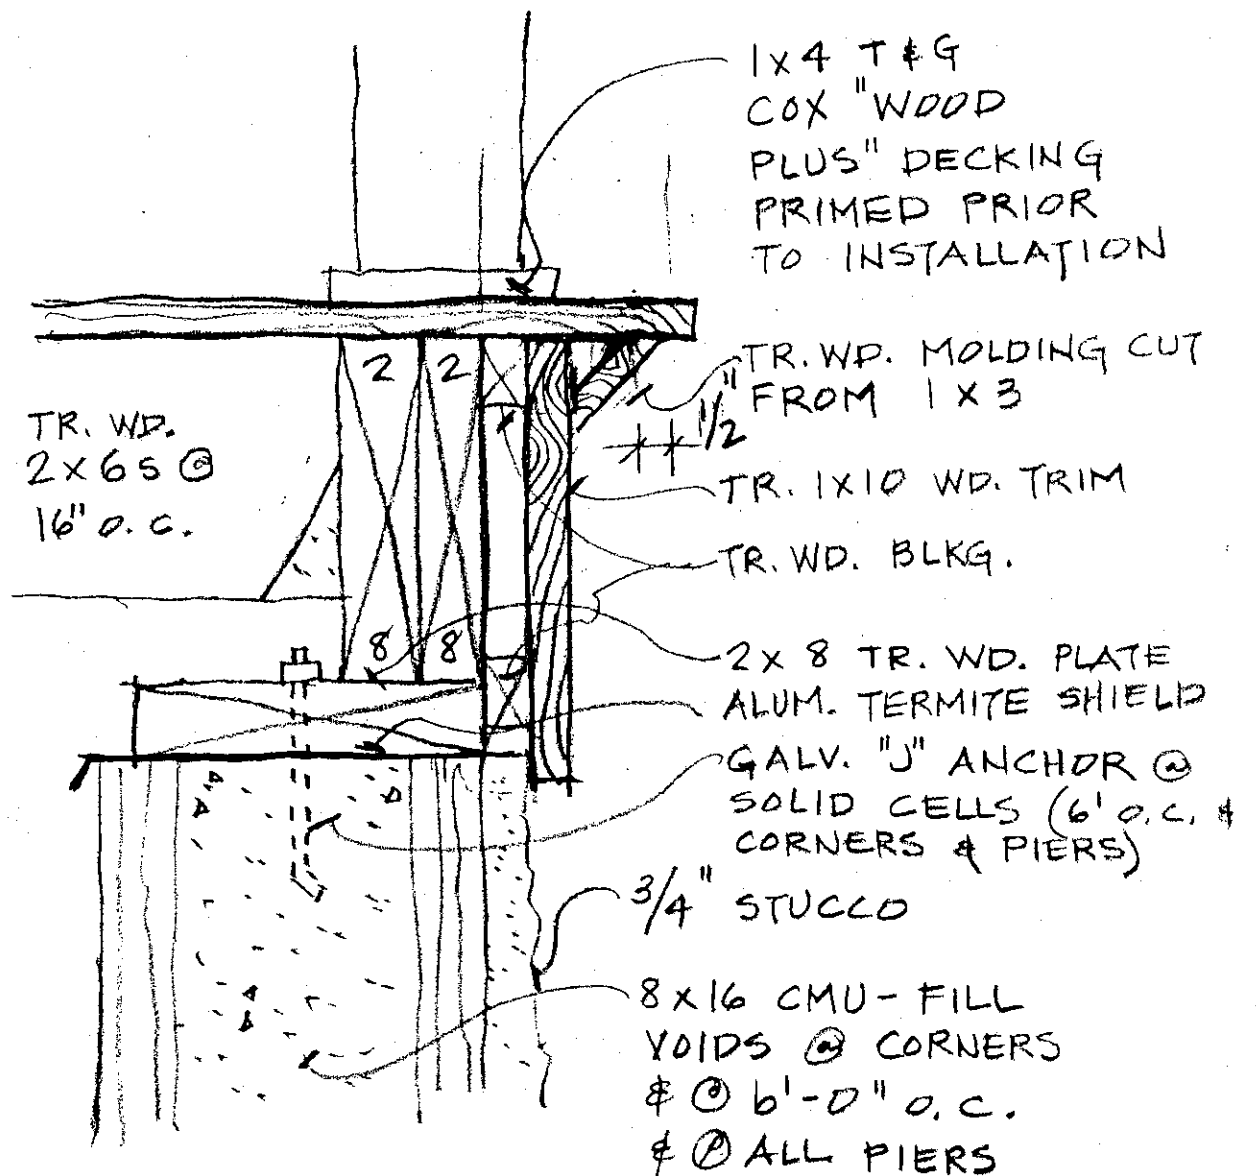 1x4 T & G
COX "WOOD
PLUS" DECKING
PRIMED PRIOR
TO INSTALLATION
2 2
TR. WD. MOLDING CUT
FROM 1 X 3
1/2"
TR. WD.
2x6s @
16" O.C.
TR. 1X10 WD. TRIM
TR. WD. BLKG.
8 8
2x 8 TR. WD. PLATE
ALUM. TERMITE SHIELD
GALV. "J" ANCHOR @
SOLID CELLS (6' O.C. &
CORNERS & PIERS)
3/4" STUCCO
8x16 CMU - FILL
VOIDS @ CORNERS
& @ 6'-0" O.C.
& @ ALL PIERS